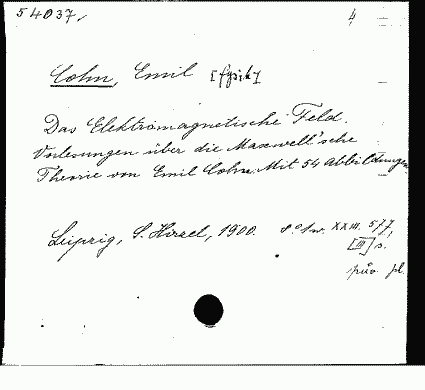 54037. 4
Cohn, Emil [fysik]
Das Elektromagnetische Feld.
Vorlesungen über die Maxwell'sche
Theorie von Emil Cohn. Mit 54 Abbildungen
Leipzig, S. Hirzel, 1900. 8° 1 w. XXIII. 577,
[III] s.
pův. pl.